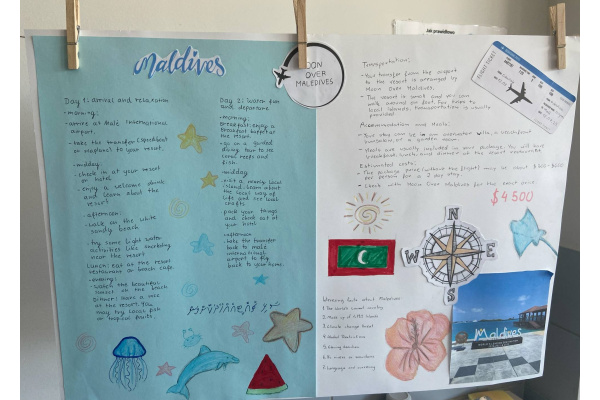 Maldives
Day 1: arrival and relaxation
- morning:
- arrive at Malé International
airport.
- take the transfer (speedboat
or seaplane) to your resort.
- midday:
- check in at your resort
or hotel
- enjoy a welcome drink
and learn about the
resort
- afternoon:
- walk on the white
sandy beach
- try some light water
activities like snorkeling
near the resort
Lunch: eat at the resort
restaurant or beach cafe.
- evening:
- watch the beautiful
sunset at the beach
Dinner: have a
at the resort. You
may try local fish
or tropical fruits.
Day 2: Water fun
and departure
- morning:
Breakfast: enjoy a
breakfast buffet at
the resort
- go on a guided
diving tour to see
coral reefs and
fish
- midday:
visit a nearby local
island. Learn about
the local way of
life and see local
crafts
pack your things
and check out of
your hotel
- afternoon
take the transfer
back to Malé
international
airport to fly
back to your home.
MOON
OVER
MALDIVES
Transportation:
- Your transfer from the airport
to the resort is arranged by
Moon Over Maldives.
- The resort is small and you can
walk around on foot. For trips to
local islands, transportation is usually
provided
Accommodation and Meals:
- Your stay can be in an overwater villa, a beachfront
bungalow or a garden room.
- Meals are usually included in your package. You will have
breakfast, lunch, and dinner at the resort restaurants
Estimated costs:
- The package price (without the flight) may be about
per person for a 2 day stay.
- Check with Moon Over Maldives for the exact price.
$4500
FLIGHT TICKET
N
W
E
S
Interesting facts about Maldives:
1. The world's lowest country
2. Made up of 1,192 islands
3. Climate change threat
4.
5. Fishing tradition
6. No rivers or mountains
7. Language and currency
Maldives
Jak prawidłowo